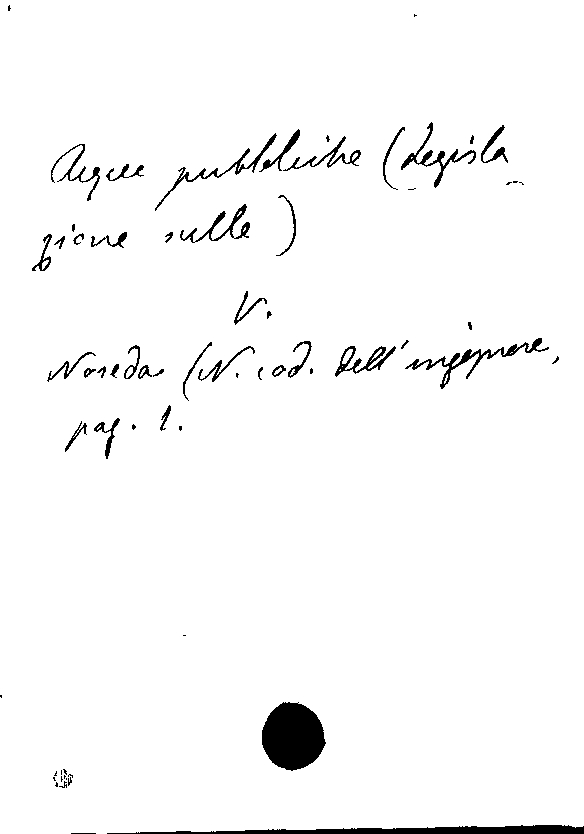 Acque pubbliche (Legisla
zione sulle)
V.
Noseda (N. cod. dell'ingegnere,
pag. 1.